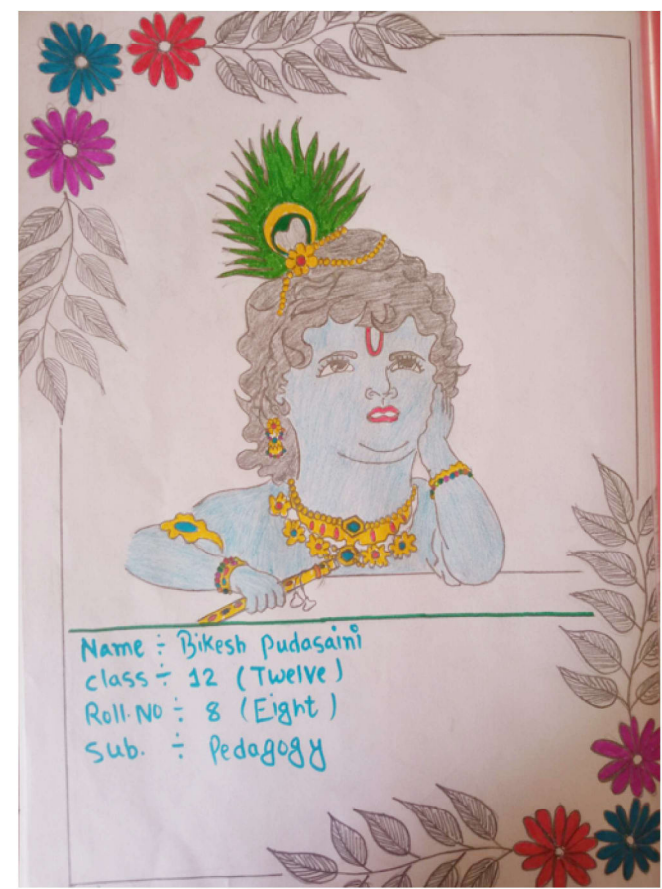 Name :- Bikesh Pudasaini
class :- 12 (Twelve)
Roll.No :- 8 (Eight)
Sub. :- Pedagogy